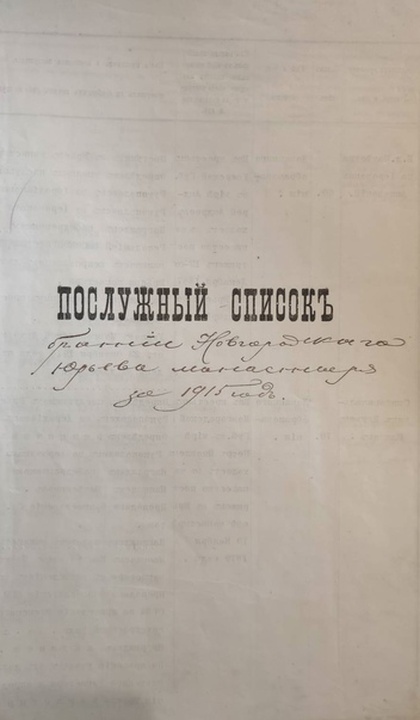 ПОСЛУЖНЫЙ СПИСОКЪ
братіи Новгородскаго
Юрьева монастыря
за 1915 годъ.